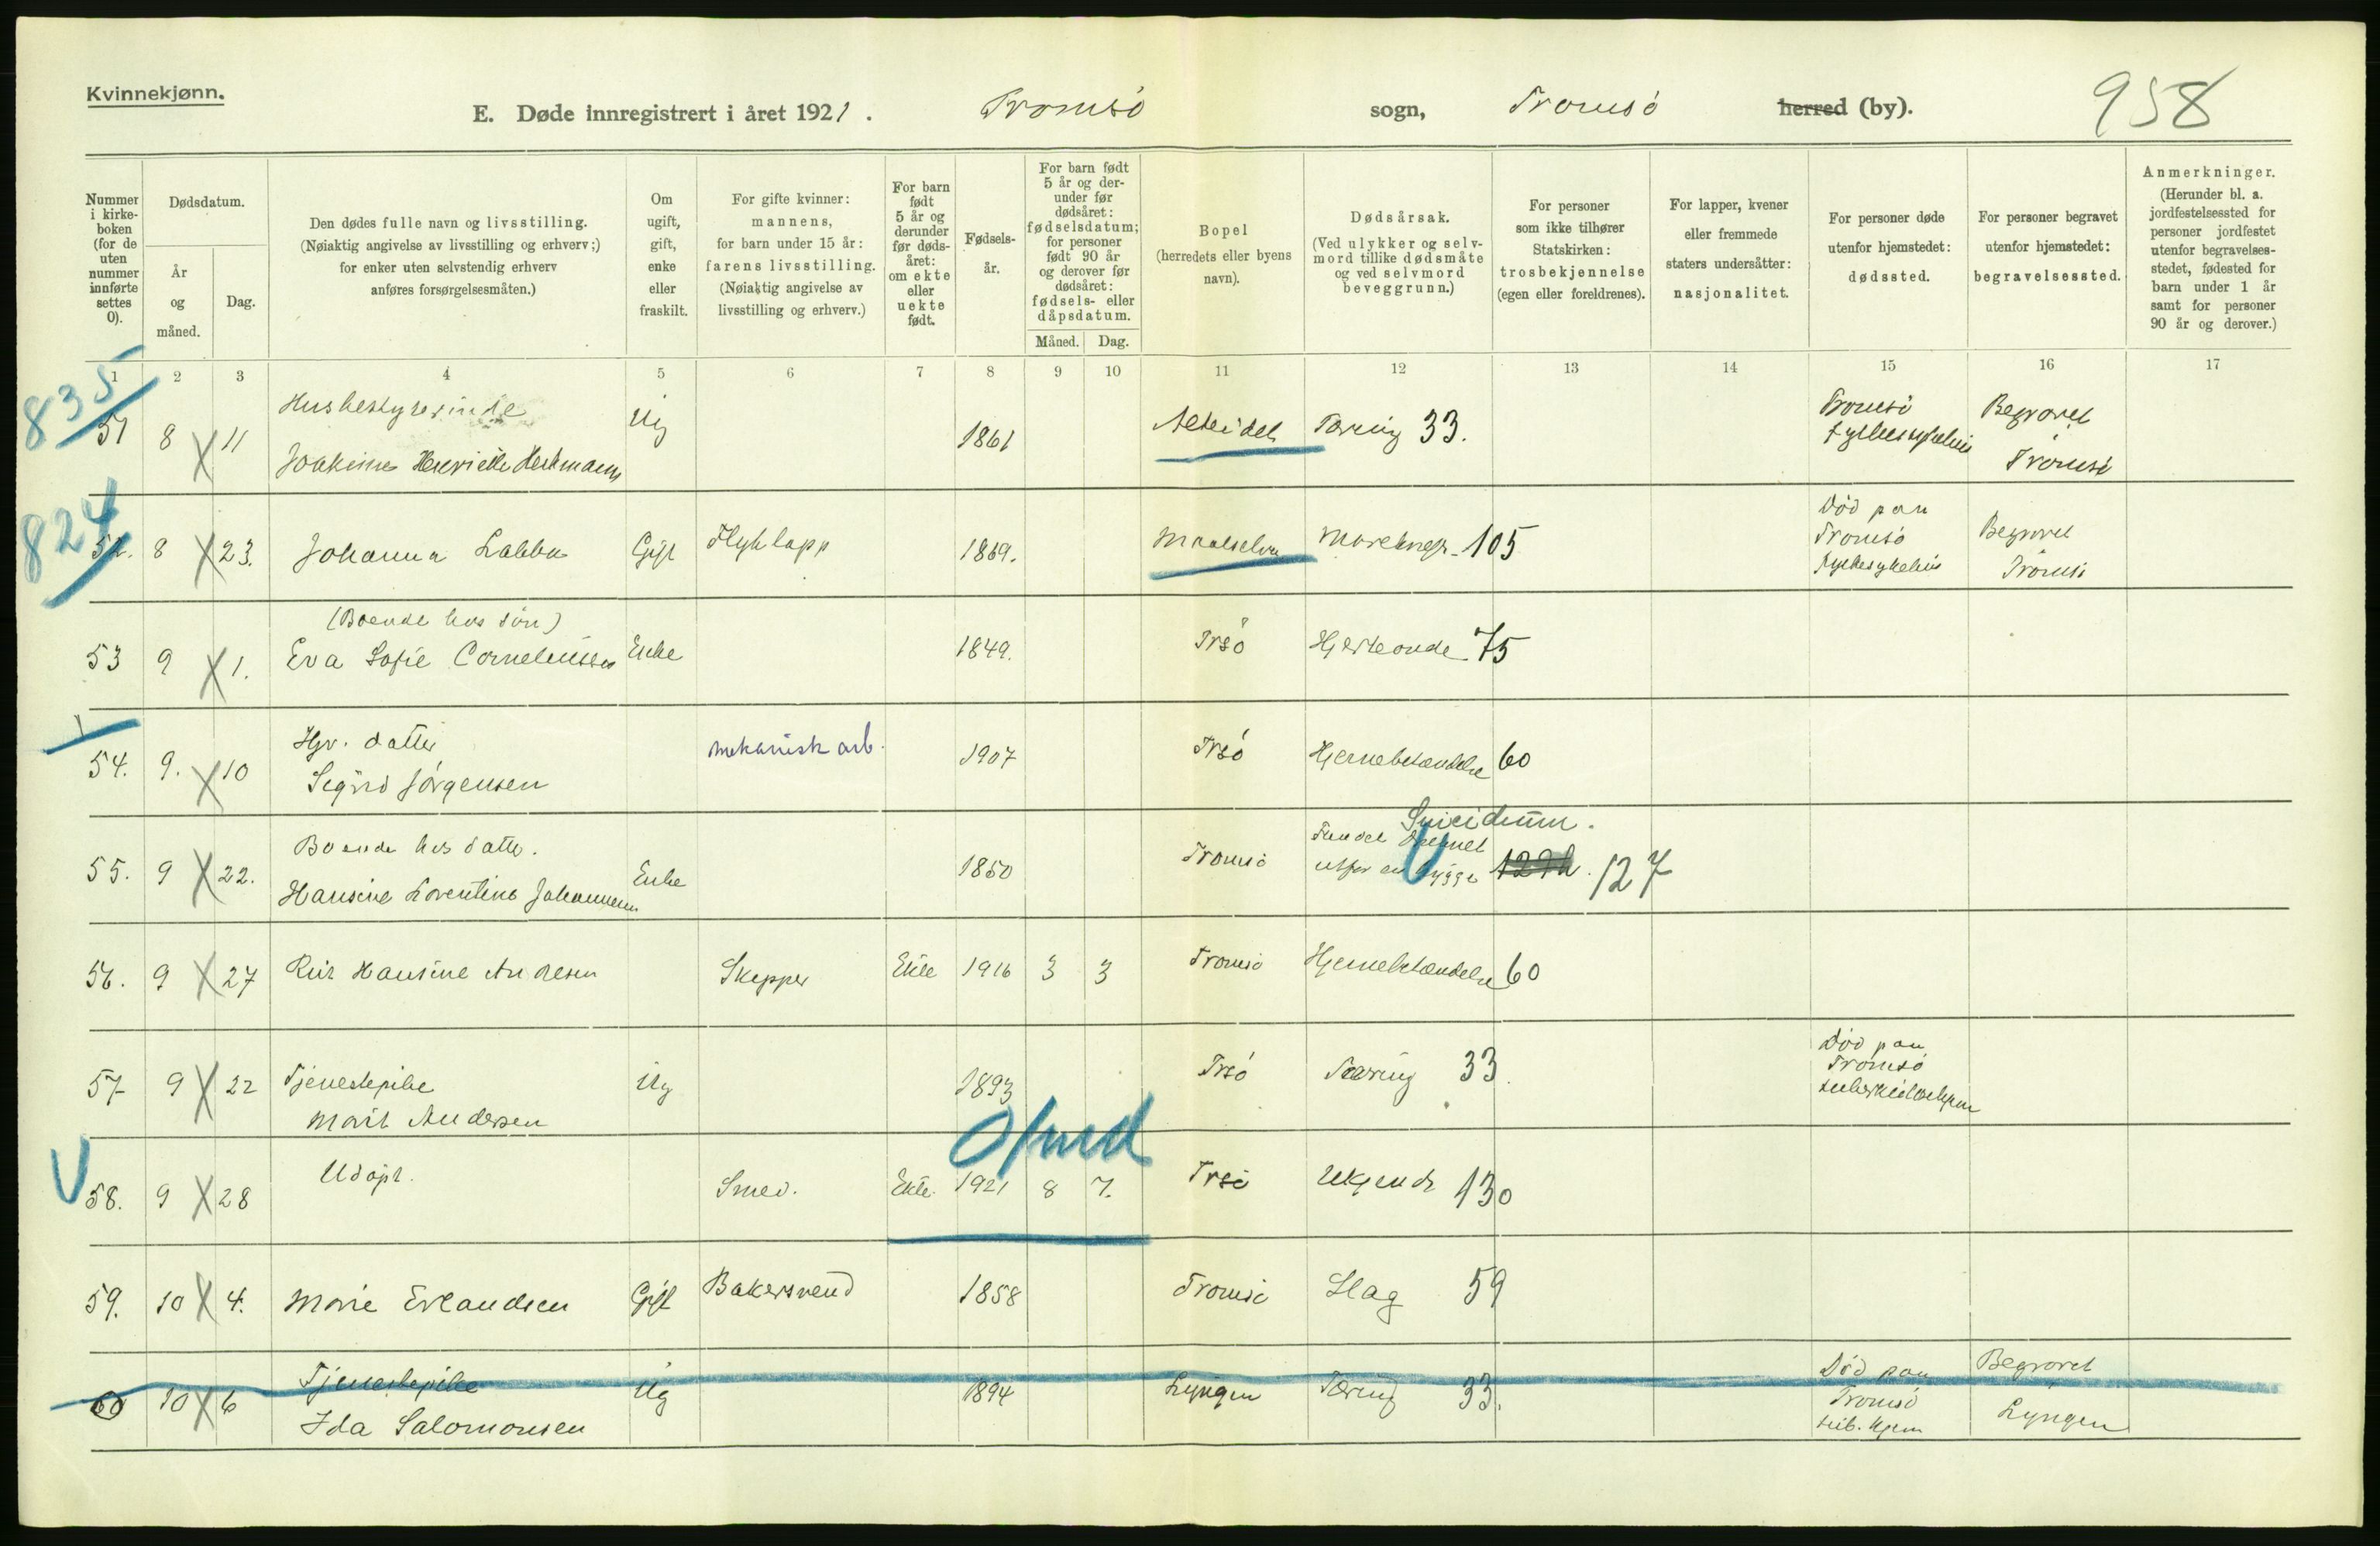 Kvinnekjønn.
E. Døde innregistrert i året 1921. Tromsö sogn, Tromsö herred (by). 958
Nummer i kirke-boken (for de uten nummer innførte settes 0).
Dødsdatum.
År og måned.
Dag.
Den dødes fulle navn og livsstilling.
(Nøiaktig angivelse av livsstilling og erhverv;)
for enker uten selvstendig erhverv
anføres forsørgelsesmåten.)
Om ugift, gift, enke eller fraskilt.
For gifte kvinner:
mannens,
for barn under 15 år:
farens livsstilling.
(Nøiaktig angivelse av
livsstilling og erhverv.)
For barn født 5 år og derunder før døds-året: om ekte eller uekte født.
Fødsels-år.
For barn født 5 år og der-under før dødsåret: fødselsdatum; for personer født 90 år og derover før dødsåret: fødsels- eller dåpsdatum.
Måned. Dag.
Bopel
(herredets eller byens
navn).
Dødsårsak.
(Ved ulykker og selv-
mord tillike dødsmåte
og ved selvmord
beveggrunn.)
For personer
som ikke tilhører
Statskirken:
trosbekjennelse
(egen eller foreldrenes).
For lapper, kvener
eller fremmede
staters undersåtter:
nasjonalitet.
For personer døde
utenfor hjemstedet:
dødssted.
For personer begravet
utenfor hjemstedet:
begravelsessted.
Anmerkninger.
(Herunder bl. a.
jordfestelsessted for
personer jordfestet
utenfor begravelses-
stedet, fødested for
barn under 1 år
samt for personer
90 år og derover.)
1 2 3 4 5 6 7 8 9 10 11 12 13 14 15 16 17
835
51 8 11 Husbestyrerinde Ug 1861 Tæring 33. Tromsö Begravet
Tromsö
824
52. 8 23. Johanna Labba Gift Flytlapp 1869. Maalselv 105 Död paa Tromsö sykehus Begravet Tromsö
(Boende hos sön)
53 9 1. Eva Sofie Corneliussen Enke 1849. Trsö Hjerteonde 75
54. 9. 10 datter mekanisk arb. 1907 Trsö Hjernebetændelse 60
Sigrid Jörgensen
Suicidium.
55. 9 22. Boende hos datter. Enke 1850 Tromsö Fundet druknet
Hansine Lorentine Johannesen utfor en brygge 127
56. 9 27 Hansine Andresen Skipper Ekte 1916 3 3 Tromsö Hjernebetændelse 60
57 9 22 Tjenestepike Ug 1893 Trsö Tæring 33 Död paa
Marit Andersen Tromsö
0/md
58. 9 28 Udöpt. Smed. Ekte. 1921 8 7. Trsö Ukjendt 130
59. 10 4. Marie Erlandsen Gift Bakersvend 1858 Tromsö Slag 59
60 10 6 Tjenestepike Ug 1894 Lyngen Tæring 33. Död paa Begravet
Ida Salomonsen Tromsö Lyngen
tub. hjem